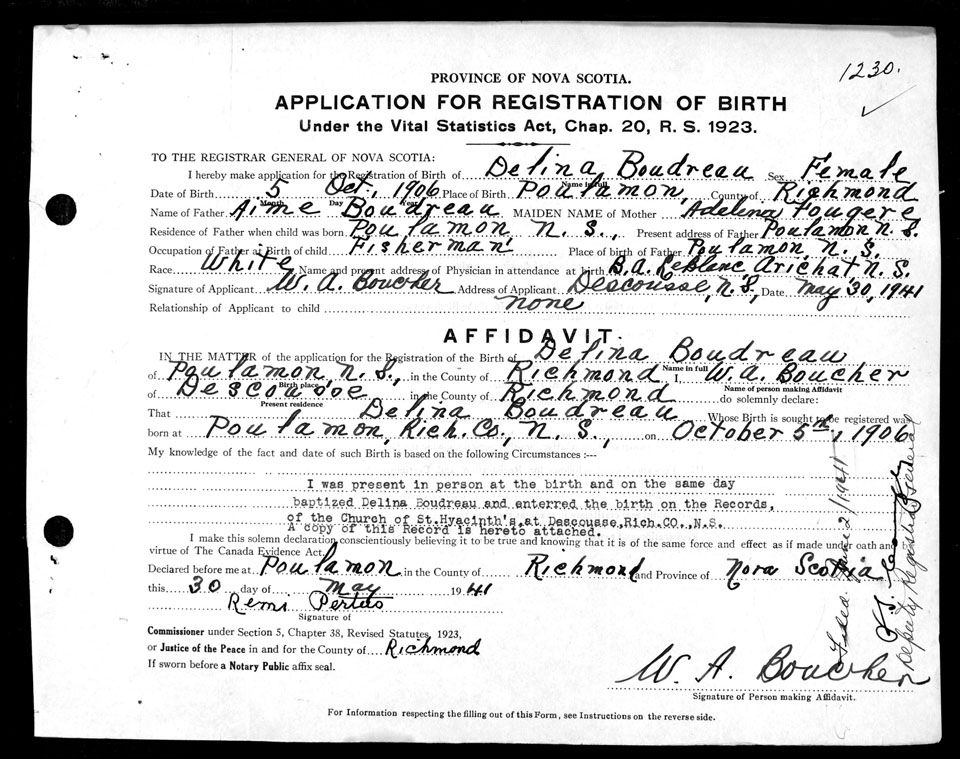 1230.
PROVINCE OF NOVA SCOTIA.
APPLICATION FOR REGISTRATION OF BIRTH
Under the Vital Statistics Act, Chap. 20, R. S. 1923.
TO THE REGISTRAR GENERAL OF NOVA SCOTIA:
I hereby make application for the Registration of Birth of Delina Boudreau Sex Female
Name in full
Date of Birth 5 Oct., 1906 Place of Birth Poulamon, County of Richmond
Month Day Year
Name of Father Aime Boudreau MAIDEN NAME of Mother Adelena Fougere
Residence of Father when child was born Poulamon N. S., Present address of Father Poulamon N. S.
Occupation of Father at Birth of child Fisherman Place of birth of Father Poulamon, N. S.
Race White Name and present address of Physician in attendance at birth B.A. LeBlanc Arichat, N. S.
Signature of Applicant W. A. Boucher Address of Applicant Descousse, N.S., Date May 30, 1941
Relationship of Applicant to child none
AFFIDAVIT.
IN THE MATTER of the application for the Registration of the Birth of Delina Boudreau
Name in full
of Poulamon N. S., in the County of Richmond I, W. A. Boucher
Birth place Name of person making Affidavit
of Descousse in the County of Richmond do solemnly declare:
Present residence
That Delina Boudreau Whose Birth is sought to be registered was
born at Poulamon, Rich. Co., N. S., on October 5th, 1906
My knowledge of the fact and date of such Birth is based on the following Circumstances :---
I was present in person at the birth and on the same day
baptized Delina Boudreau and enterred the birth on the Records,
of the Church of St.Hyacinth's,at Descousse,Rich.CO.,N.S.
A copy of this Record is hereto attached.
I make this solemn declaration conscientiously believing it to be true and knowing that it is of the same force and effect as if made under oath and by
virtue of The Canada Evidence Act.
Declared before me at Poulamon in the County of Richmond and Province of Nova Scotia
this 30 day of May 1941
Remi
Signature of
Commissioner under Section 5, Chapter 38, Revised Statutes, 1923,
or Justice of the Peace in and for the County of Richmond
If sworn before a Notary Public affix seal.
W. A. Boucher
Signature of Person making Affidavit.
For Information respecting the filling out of this Form, see Instructions on the reverse side.
Deputy Registrar General